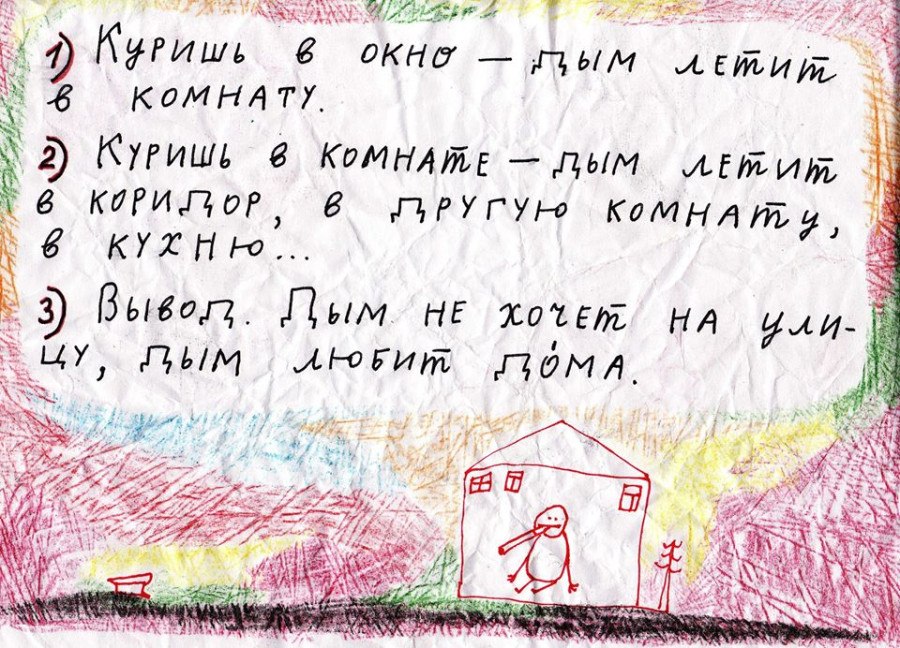 1) Куришь в окно — дым летит
в комнату.
2) Куришь в комнате — дым летит
в коридор, в другую комнату,
в кухню...
3) Вывод. Дым не хочет на ули-
цу, дым любит до́ма.